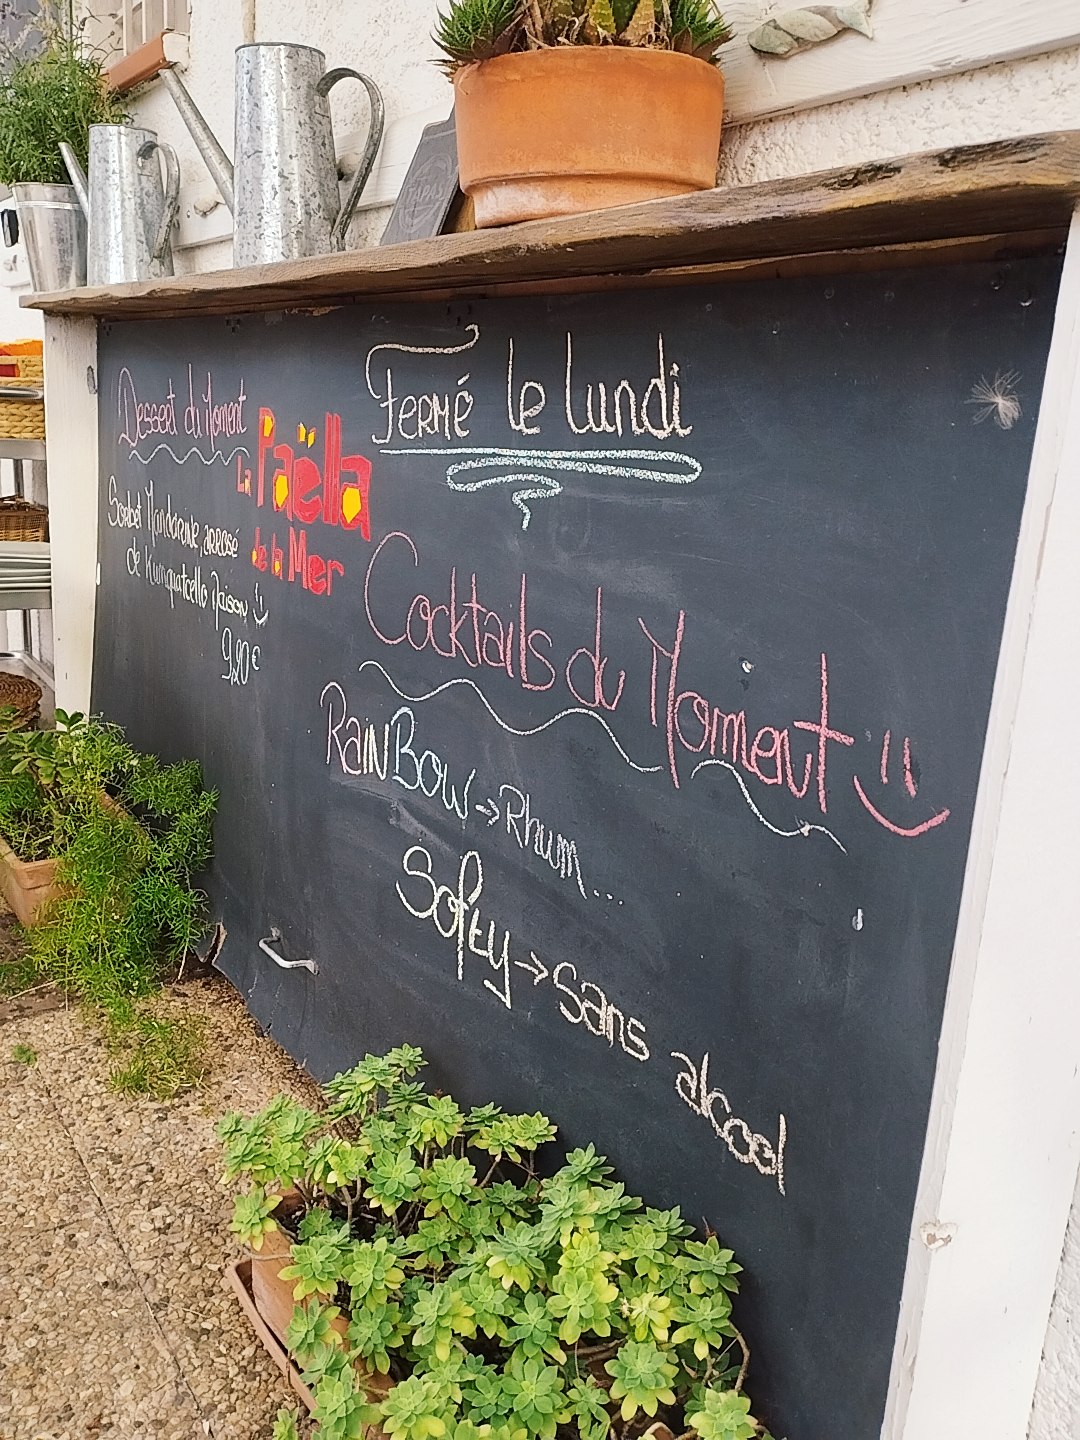 Dessert du Moment
Sorbet Mandarine, arrosé
de Kumquatcello Maison
9,20€
La Paëlla
de la Mer
Fermé le lundi
Cocktails du Moment
RainBow → Rhum...
Softy → Sans alcool